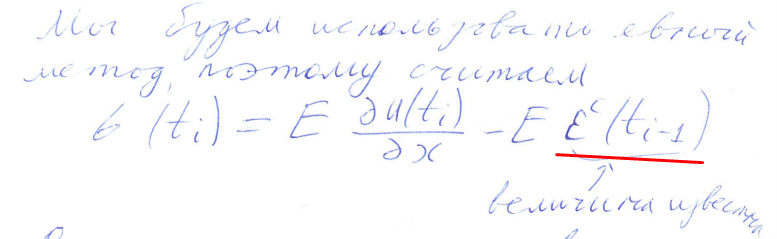 Мы будем использовать явный
метод, поэтому считаем
σ(tᵢ) = E ∂u(tᵢ)/∂x - E εᶜ(tᵢ₋₁)
↑
величина известна